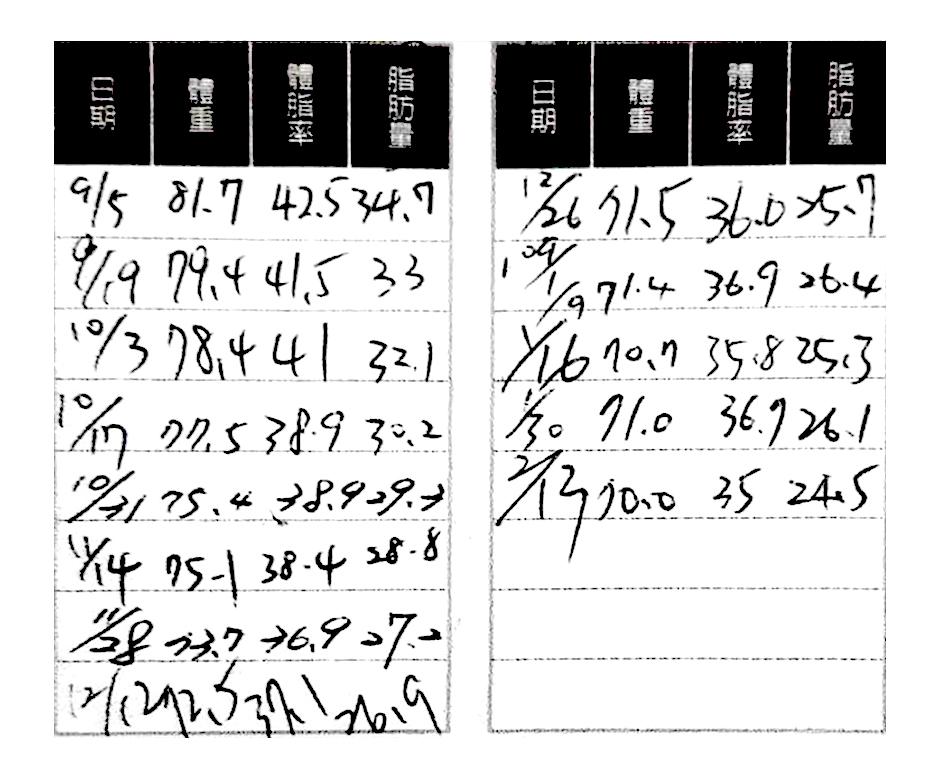 日期 體重 體脂率 脂肪量
9/5 81.7 42.5 34.7
9/19 79.4 41.5 33
10/3 78.4 41 32.1
10/17 77.5 38.9 30.2
10/31 75.4 38.9 29.3
11/14 75.1 38.4 28.8
11/28 73.7 36.9 27.2
12/12 72.5 37.1 26.9
日期 體重 體脂率 脂肪量
12/26 71.5 36.0 25.7
109/1/9 71.4 36.9 26.4
1/16 70.7 35.8 25.3
1/30 71.0 36.7 26.1
2/13 70.0 35 24.5